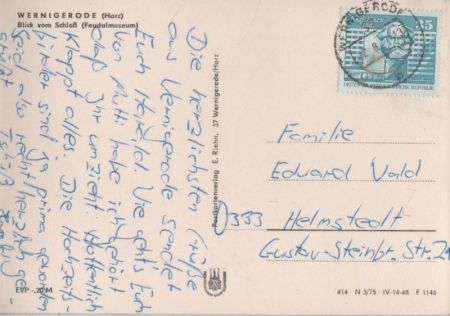 WERNIGERODE (Harz)
Blick vom Schloß (Feudalmuseum)
Die herzlichsten Grüße
aus Wernigerode sendet
Euch Harald. Wie gehts Euch
Von Mutti habe ich gehört
daß Ihr umzieht. Hoffentlich
klappt alles. Die Hochzeits-
bilder sind ja prima geworden
Seid also recht herzlich ge-
grüßt
EVP -,20 M
Postkartenverlag E. Riehn, 37 Wernigerode/Harz
WERNIGERODE
35
DEUTSCHE DEMOKRATISCHE REPUBLIK
Familie
Eduard Wald
3333 Helmstedt
Gustav-Steinbr. Str. 2
414 N 3/75 IV-14-48 F 1146